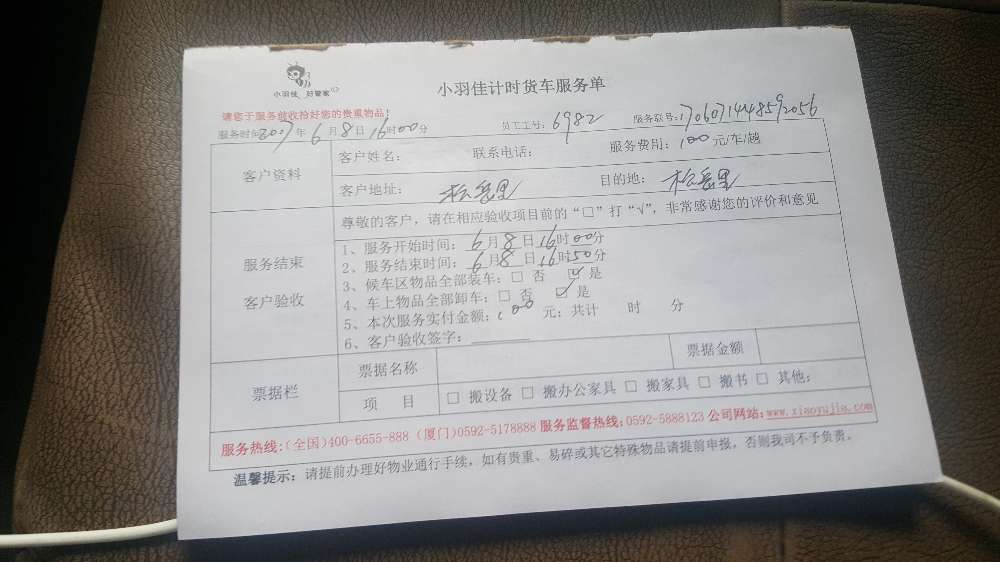 小羽佳 好管家
小羽佳计时货车服务单
请您于服务前收拾好您的贵重物品！
服务时间：2017年6月8日16时00分 员工工号：6982 服务款号：1706071448592056
客户资料
客户姓名： 联系电话： 服务费用：100元/车/趟
客户地址：松岳里 目的地：松岳里
服务结束
客户验收
尊敬的客户，请在相应验收项目前的“□”打“√”，非常感谢您的评价和意见
1、服务开始时间：6月8日16时00分
2、服务结束时间：6月8日16时50分
3、候车区物品全部装车：□ 否 ☑ 是
4、车上物品全部卸车：□ 否 ☑ 是
5、本次服务实付金额：100元；共计 时 分
6、客户验收签字：
票据栏
票据名称 票据金额
项 目 □ 搬设备 □ 搬办公家具 □ 搬家具 □ 搬书 □ 其他：
服务热线：(全国)400-6655-888 (厦门)0592-5178888 服务监督热线：0592-5888123 公司网站：www.xiaoyujia.com
温馨提示：请提前办理好物业通行手续，如有贵重、易碎或其它特殊物品请提前申报，否则我司不予负责。